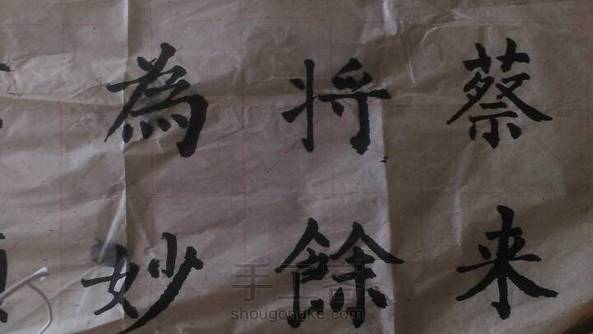 蔡来
将餘
為妙
手工客
shougongke.com